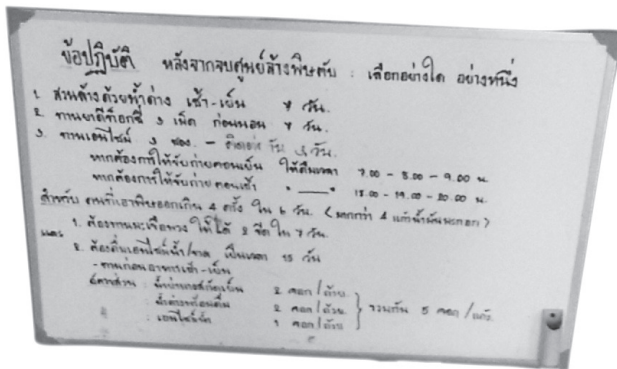 ข้อปฏิบัติ หลังจากจบศูนย์ล้างพิษตับ : เลือกอย่างใด อย่างหนึ่ง
1. สวนล้างด้วยน้ำด่าง เช้า-เย็น 7 วัน.
2. ทานยาดีท็อกซ์ 3 เม็ด ก่อนนอน 7 วัน.
3. ทานเอนไซม์ 3 ซอง. - ติดต่อกัน 3 วัน.
หากต้องการให้ขับถ่ายตอนเย็น ให้ดื่มเวลา 7.00 - 8.00 - 9.00 น.
หากต้องการให้ขับถ่ายตอนเช้า " —— " 18.00 - 19.00 - 20.00 น.
สำหรับ คนที่เอาพิษออกเกิน 4 ครั้ง ใน 6 วัน. (มากกว่า 4 แก้วน้ำมันมะกอก)
1. ต้องทานมะเขือพวง ให้ได้ 2 ขีด ใน 7 วัน.
และ 2. ต้องดื่มเอนไซม์น้ำ/ขวด เป็นเวลา 15 วัน
- ทานก่อนอาหารเช้า-เย็น
อัตราส่วน : น้ำย่านางสกัดเย็น 2 ศอก/ถ้วย.
น้ำด่างพร้อมดื่ม 2 ศอก/ถ้วย. } รวมกัน 5 ศอก/แก้ว.
: เอนไซม์น้ำ 1 ศอก/ถ้วย